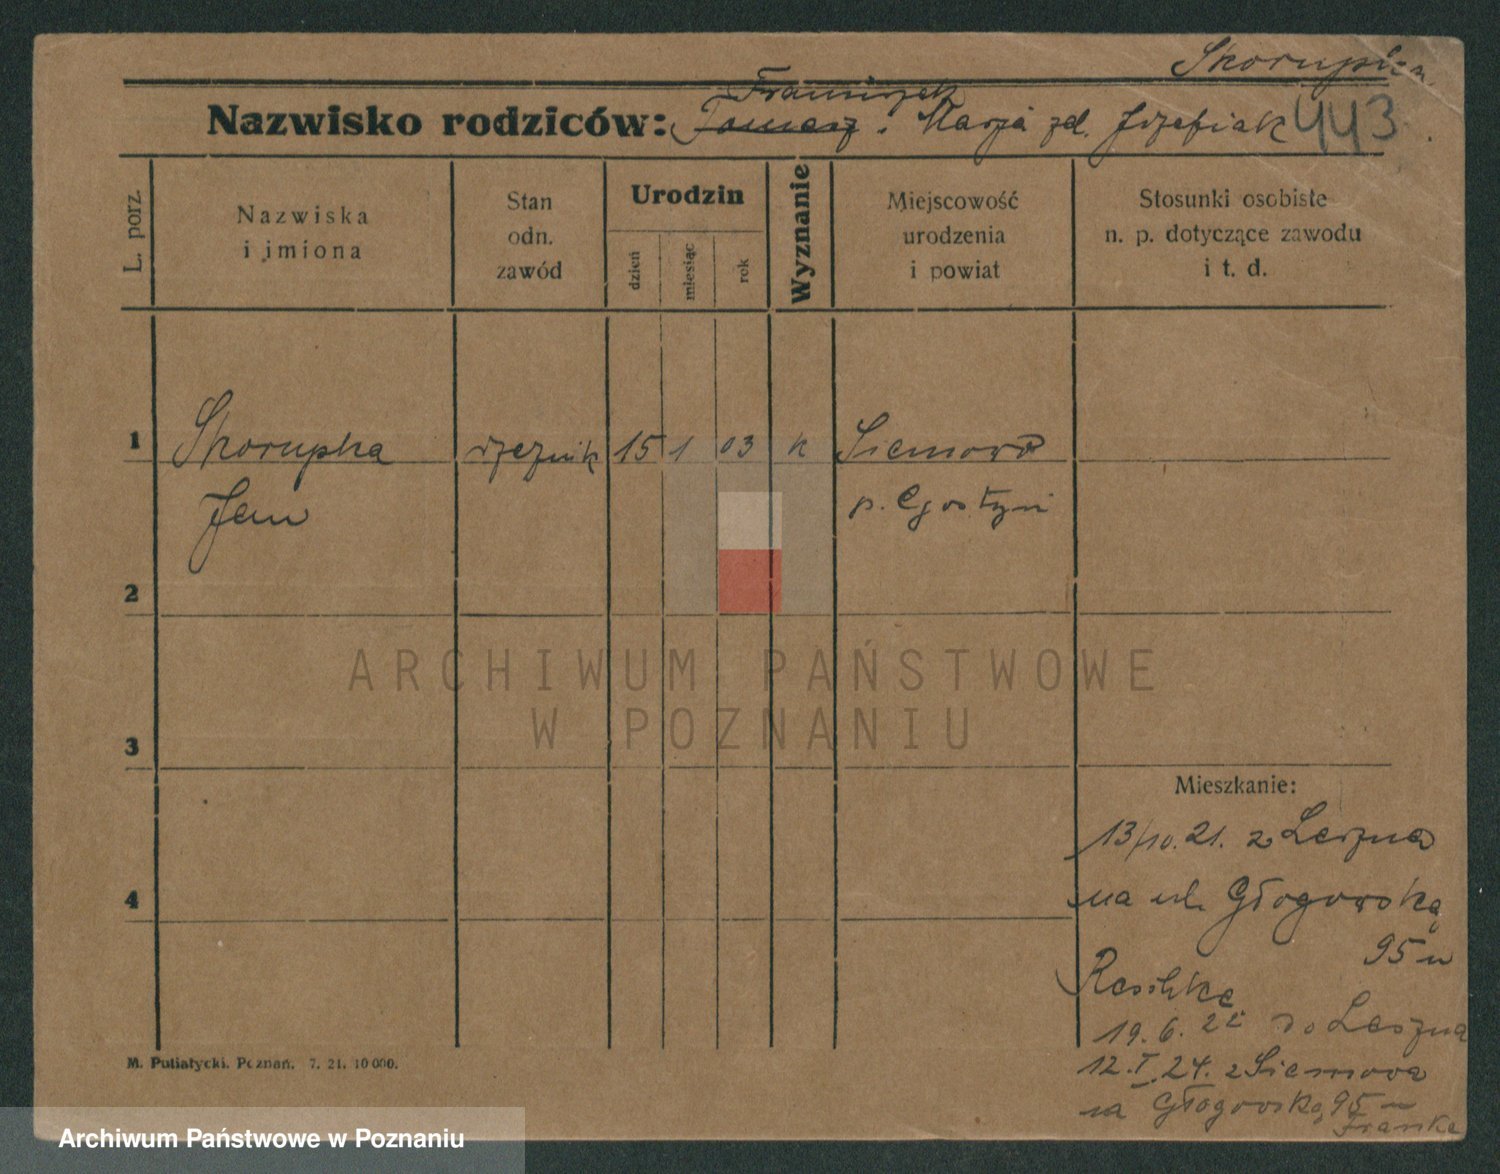 Skorupka
Franciszek
Nazwisko rodziców: Tomasz i Marja zd. Józefiak 443
L. porz.
Nazwiska i imiona
Stan odn. zawód
Urodzin
dzień
miesiąc
rok
Wyznanie
Miejscowość urodzenia i powiat
Stosunki osobiste n. p. dotyczące zawodu i t. d.
1 Skorupka rzeźnik 15 1 03 k Siemowo
Jan p. Gostyń
2
3
4
Mieszkanie:
13/10. 21. z Leszna
na ul. Głogowską
95 u
Reschke
19. 6. 22 do Leszna
12. I. 24. z Siemowa
na Głogowską 95 u
Franke
M. Putiatycki. Poznań. 7. 21. 10 000.
ARCHIWUM PAŃSTWOWE
W POZNANIU
Archiwum Państwowe w Poznaniu